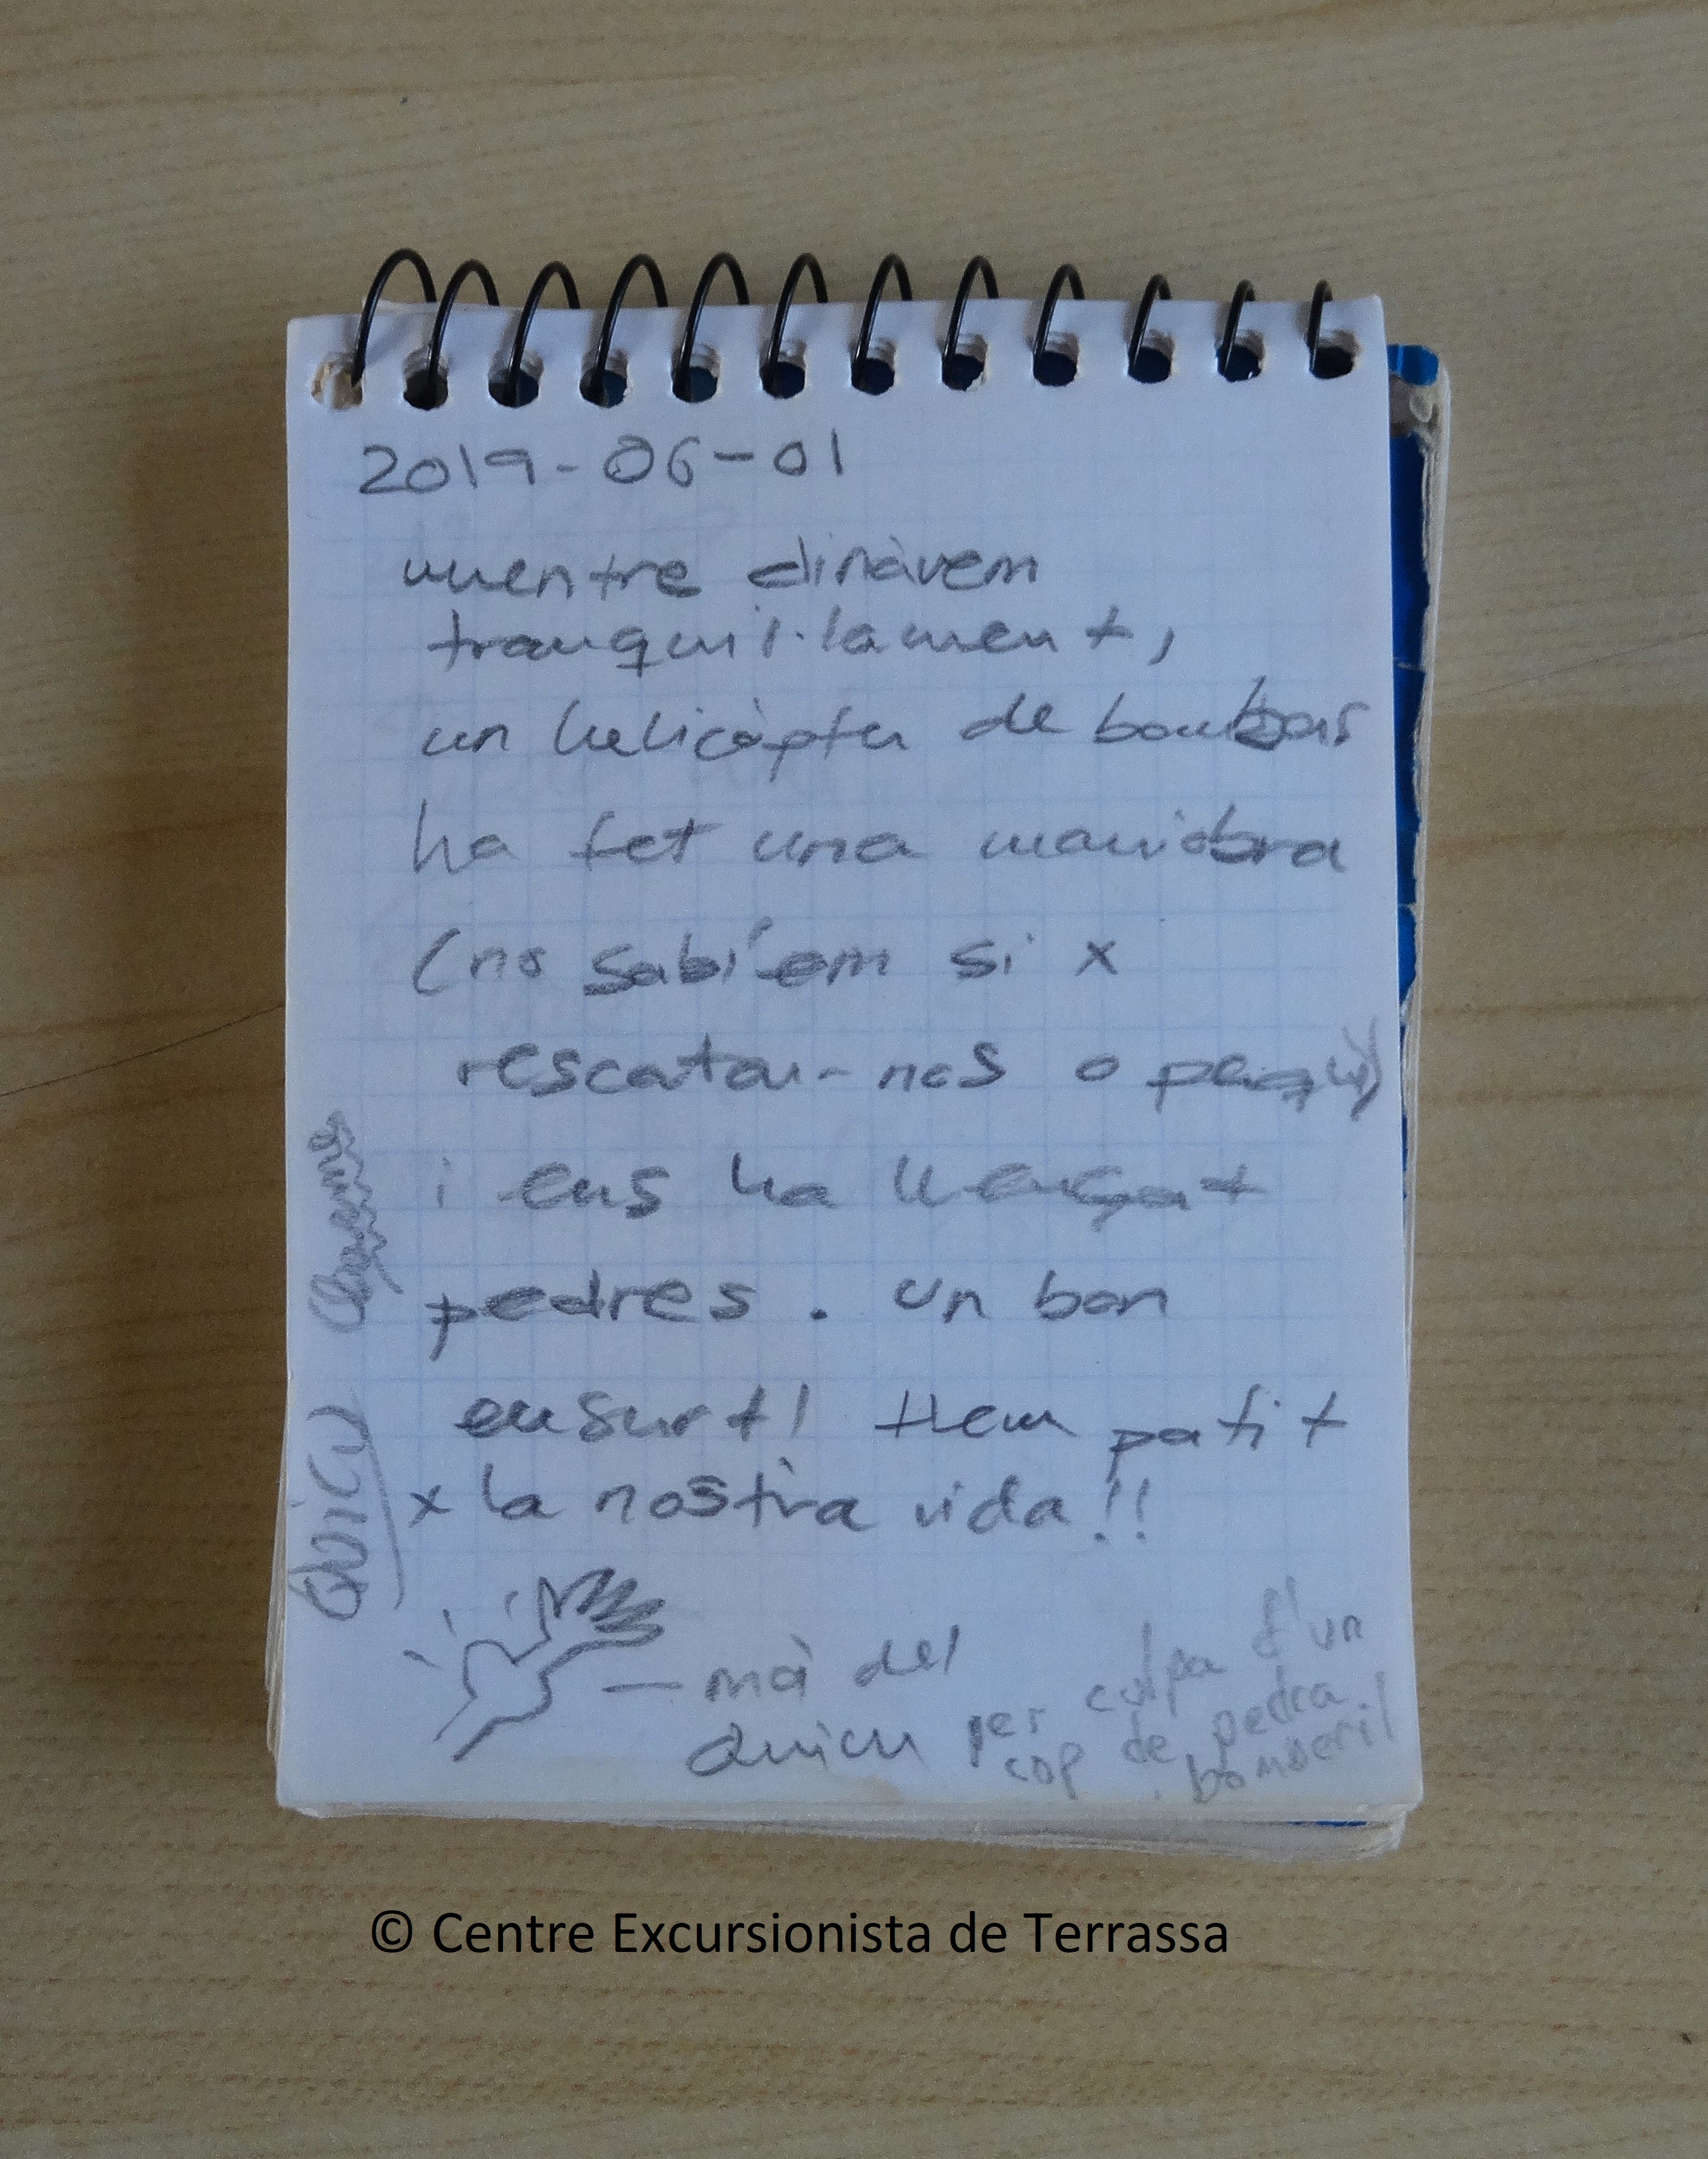 2019-06-01
mentre dinàvem
tranquil·lament,
un helicòpter de bombers
ha fet una maniobra
(no sabíem si x
rescatar-nos o perquè)
i ens ha llençat
pedres. Un bon
ensurt! Hem patit
x la nostra vida!!
Quicu
— mà del
Quicu per culpa d'un
cop de pedra
bomberil
© Centre Excursionista de Terrassa